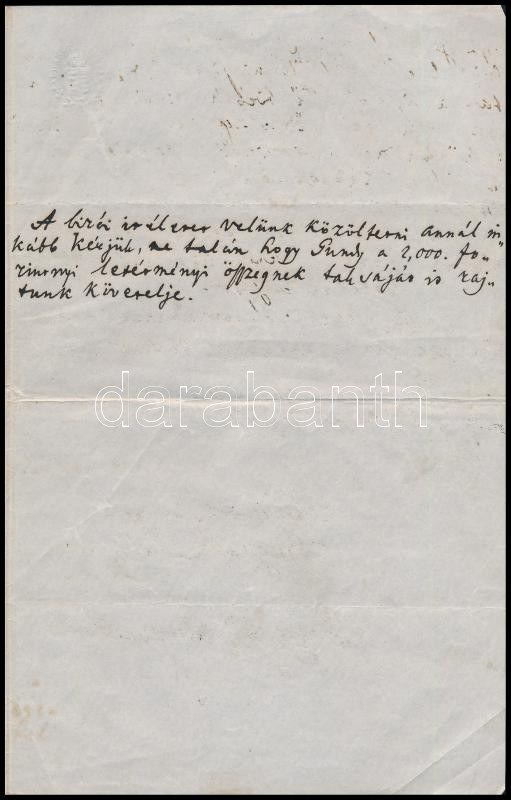 A birói itéletet velünk közöltetni annál in
kább kérjük, ne talán hogy Gundy a 2,000. fo„
rintnyi letéményi összegnek tartását is raj„
tunk követelje.
darabanth